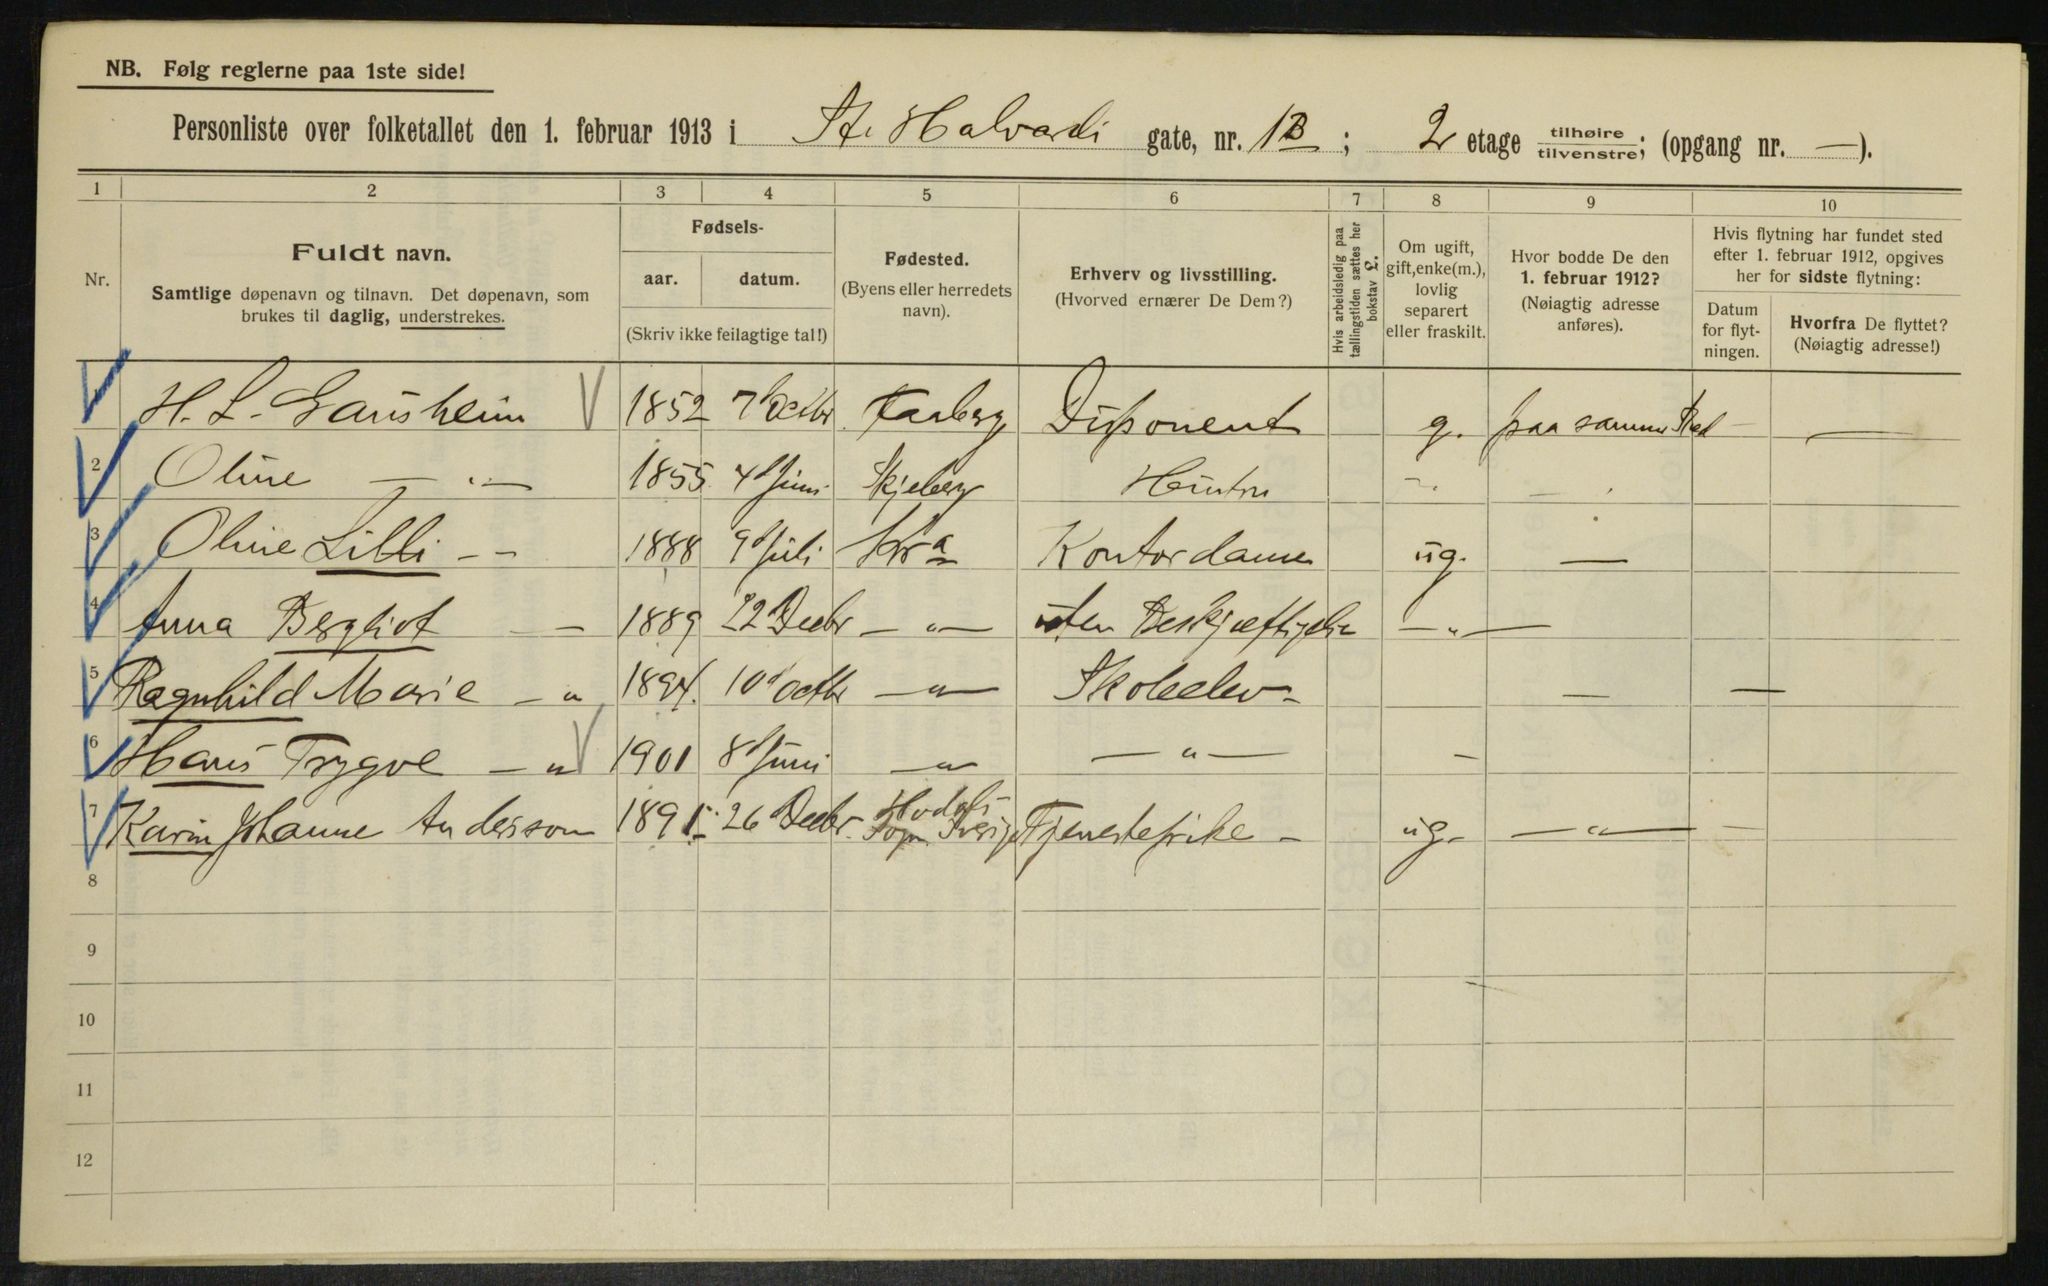 NB. Følg reglerne paa 1ste side!
Personliste over folketallet den 1. februar 1913 i St. Halvards gate, nr. 1B; 2 etage tilhøire/tilvenstre; (opgang nr. —).
1 2 3 4 5 6 7 8 9 10
Nr.
Fuldt navn.
Samtlige døpenavn og tilnavn. Det døpenavn, som
brukes til daglig, understrekes.
Fødsels-
aar. datum.
(Skriv ikke feilagtige tal!)
Fødested.
(Byens eller herredets
navn).
Erhverv og livsstilling.
(Hvorved ernærer De Dem?)
Hvis arbeidsledig paa
tællingstiden sættes her
bokstav £.
Om ugift,
gift, enke(m.),
lovlig
separert
eller fraskilt.
Hvor bodde De den
1. februar 1912?
(Nøiagtig adresse
anføres).
Hvis flytning har fundet sted
efter 1. februar 1912, opgives
her for sidste flytning:
Datum
for flyt-
ningen.
Hvorfra De flyttet?
(Nøiagtig adresse!)
1 H. L. Gausheim 1852 7 Octbr Disponent g. paa samme Sted — —
2 Oline — " — 1855 4 Juni Skjeberg Hustru — " —
3 Oline Lilli — — 1888 9 Juli Kra Kontordame ug. —
4 Anna Bergliot — — 1889 22 Decbr — " — uten Beskjæftigelse — " —
5 Ragnhild Marie — " 1894. 10 Octbr — " — Skoleelev — — —
6 Hans Trygve — " 1901 8 Juni — " — " — —
7 Karin Johanne Andersson 1891 26 Decbr. Sogn Sverige Tjenestepike — ug. — " — —
8
9
10
11
12